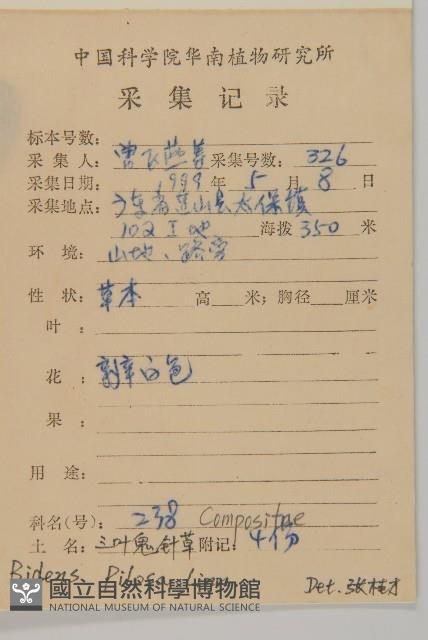 中国科学院华南植物研究所
采集记录
标本号数：
采集人：曾飞燕等 采集号数：326
采集日期：1999年5月8日
采集地点：广东省连山县太保镇
102工地 海拨350米
环境：山地、路旁
性状：草本 高 米；胸径 厘米
叶：
花：瓣白色
果：
用途：
科名(号)：238 Compositae
土名：三叶鬼针草 附记：4份
Bidens Pilosa Linn
Det. 张桂才
國立自然科學博物館
NATIONAL MUSEUM OF NATURAL SCIENCE